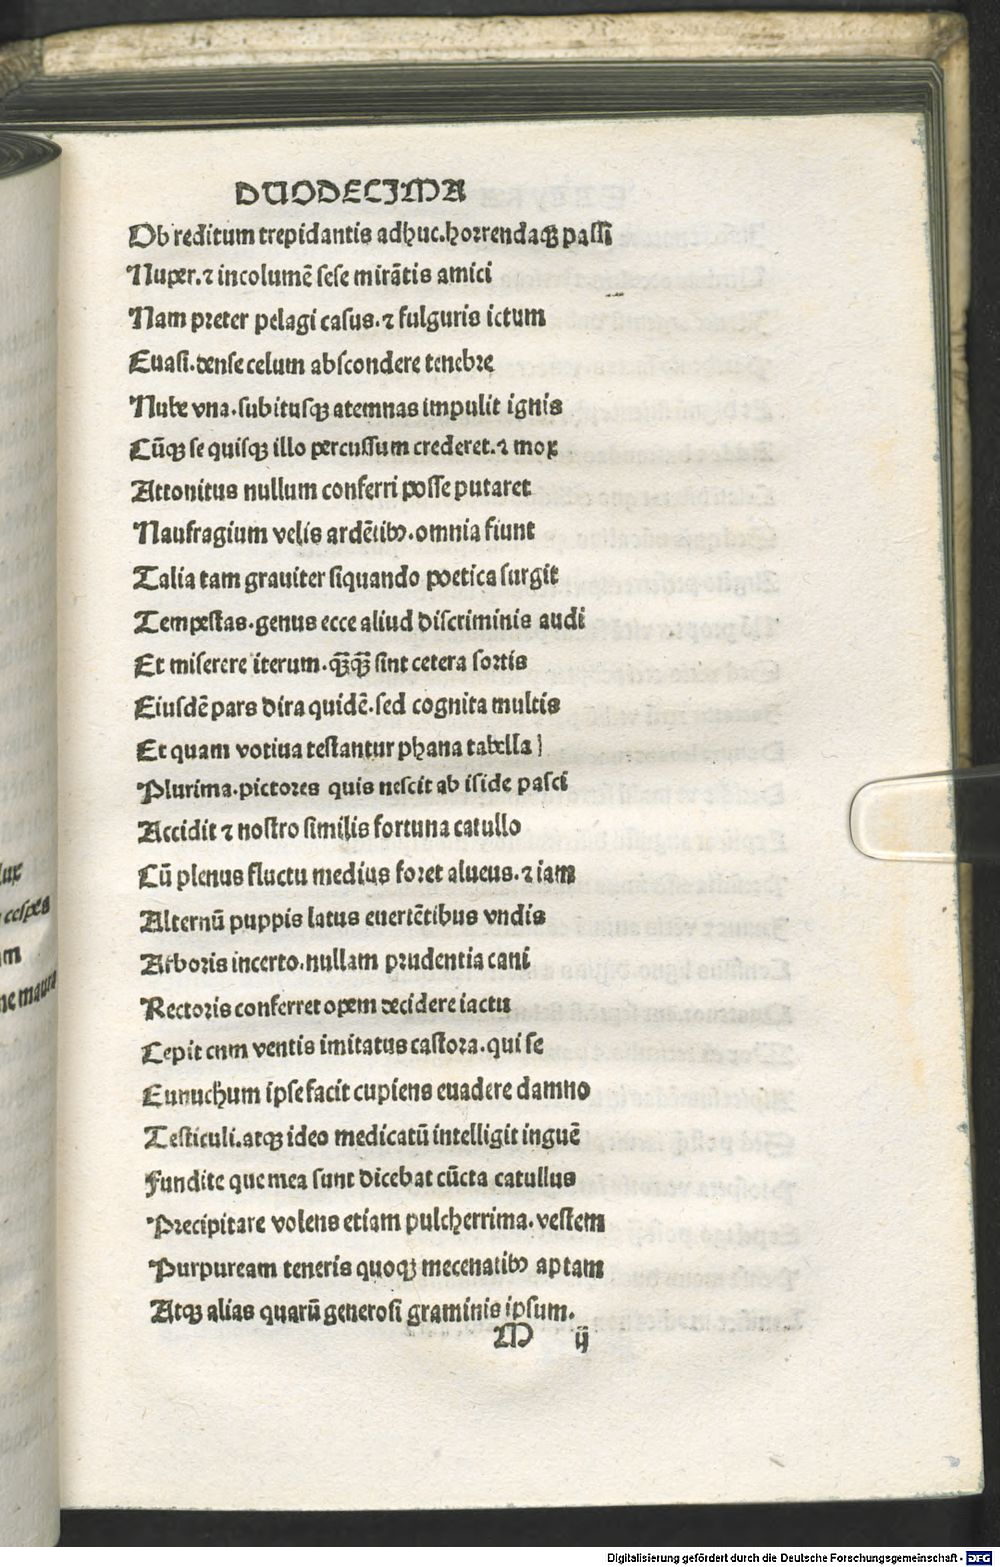 DUODECIMA
Ob reditum trepidantis adhuc.horrendaqꝫ passi
Nuper.⁊ incolumē sese mirātis amici
Nam preter pelagi casus.⁊ fulguris ictum
Euasi.dense celum abscondere tenebre
Nube vna.subitusqꝫ atemnas impulit ignis
Cūqꝫ se quisqꝫ illo percussum crederet.⁊ mox
Attonitus nullum conferri posse putaret
Naufragium velis ardētibꝰ.omnia fiunt
Talia tam grauiter siquando poetica surgit
Tempestas.genus ecce aliud discriminis audi
Et miserere iterum.qꝫ̄qꝫ̄ sint cetera sortis
Eiusdē pars dira quidē.sed cognita multis
Et quam votiua testantur phana tabella
Plurima.pictores quis nescit ab iside pasci
Accidit ⁊ nostro similis fortuna catullo
Cū plenus fluctu medius foret alueus.⁊ iam
Alternū puppis latus euertētibus vndis
Arboris incerto.nullam prudentia cani
Rectoris conferret opem decidere iactu
Cepit cum ventis imitatus castora.qui se
Eunuchum ipse facit cupiens euadere damno
Testiculi.atqꝫ ideo medicatū intelligit inguē
Fundite que mea sunt dicebat cūcta catullus
Precipitare volens etiam pulcherrima.vestem
Purpuream teneris quoqꝫ mecenatibꝰ aptam
Atqꝫ alias quarū generosi graminis ipsum.
M ij
lux
cespes
m
ne maura
Digitalisierung gefördert durch die Deutsche Forschungsgemeinschaft - DFG